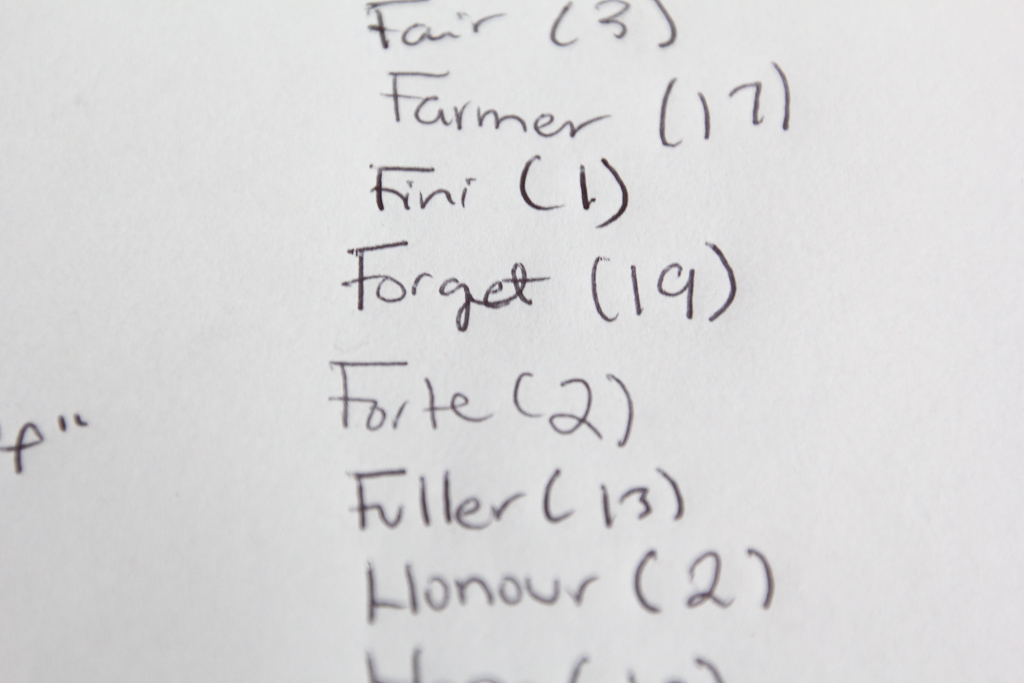 Fair (3)
Farmer (17)
Fini (1)
Forget (19)
Forte (2)
Fuller (13)
Honour (2)